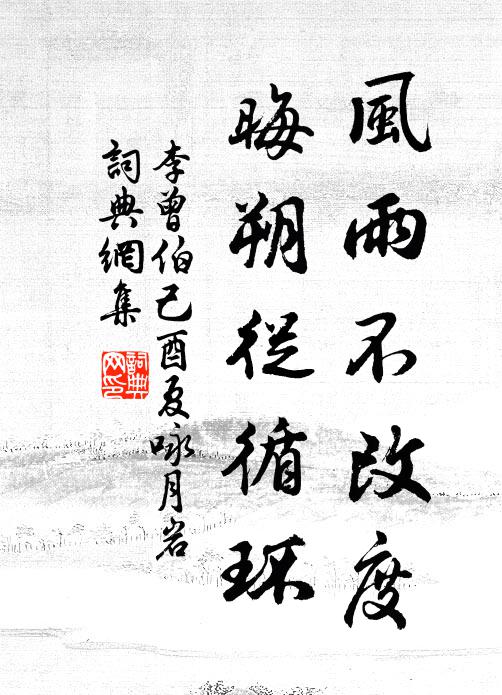 風雨不改度
晦朔從循環
李曾伯己酉夏咏月岩
詞典網集
詞典
网印